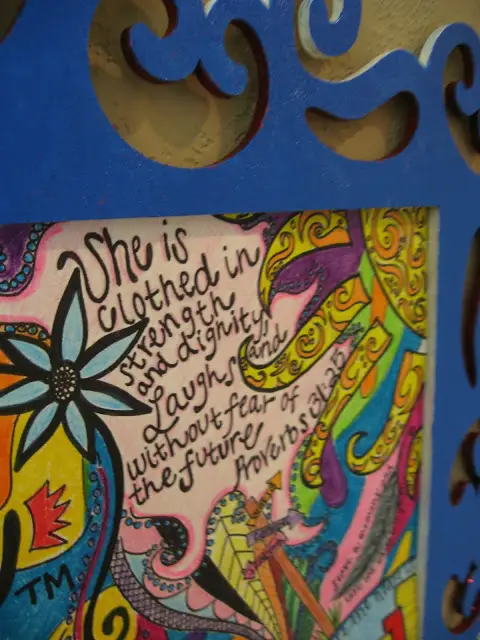 She is
clothed in
strength
and dignity,
and
Laughs
without fear of
the future
Proverbs 31:25
TM